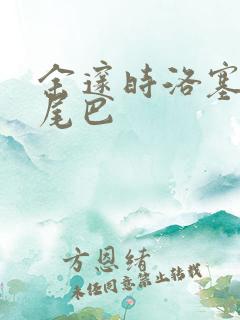 余邃时洛塞
尾巴
方恩绪
未经同意禁止转载